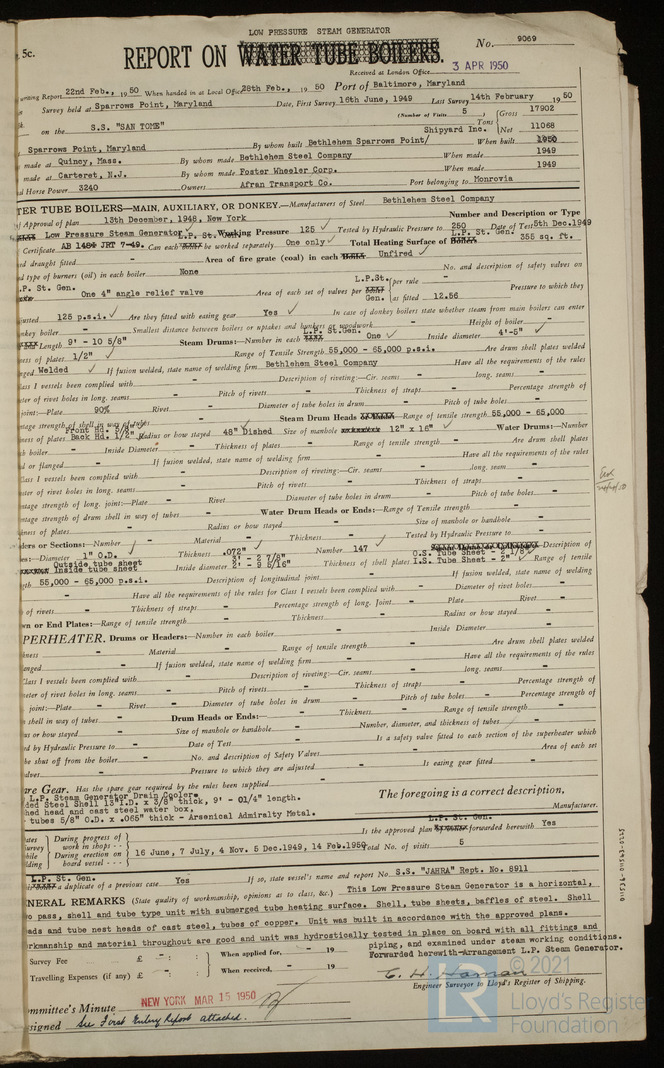 LOW PRESSURE STEAM GENERATOR
5c. REPORT ON WATER TUBE BOILERS. No. 9069
Received at London Office 3 APR 1950
Writing Report 22nd Feb., 19 50 When handed in at Local Office 28th Feb., 19 50 Port of Baltimore, Maryland
Survey held at Sparrows Point, Maryland Date, First Survey 16th June, 1949 Last Survey 14th February 19 50
(Number of Visits 5)
on the S.S. "SAN TOME" Tons { Gross 17902 Net 11068
Sparrows Point, Maryland By whom built Bethlehem Sparrows Point/ Shipyard Inc. When built 1950
made at Quincy, Mass. By whom made Bethlehem Steel Company When made 1949
made at Carteret, N.J. By whom made Foster Wheeler Corp. When made 1949
Horse Power 3240 Owners Afran Transport Co. Port belonging to Monrovia
TER TUBE BOILERS—MAIN, AUXILIARY, OR DONKEY.—Manufacturers of Steel Bethlehem Steel Company
Approval of plan 13th December, 1948, New York Number and Description or Type
Low Pressure Steam Generator Working Pressure 125 ✓ Tested by Hydraulic Pressure to 250 Date of Test 5th Dec.1949
Certificate AB 1484 JRT 7-49. Can each L.P. St. Gen. be worked separately One only ✓ Total Heating Surface of L.P. St. Gen. 355 sq. ft.
draught fitted - Area of fire grate (coal) in each Boiler Unfired ✓
type of burners (oil) in each boiler None No. and description of safety valves on
L.P. St. Gen. One 4" angle relief valve Area of each set of valves per L.P.St. Gen. { per rule - as fitted 12.56 Pressure to which they
adjusted 125 p.s.i. ✓ Are they fitted with easing gear Yes ✓ In case of donkey boilers state whether steam from main boilers can enter
donkey boiler - Smallest distance between boilers or uptakes and bunkers or woodwork - Height of boiler -
Length 9' - 10 5/8" Steam Drums:—Number in each L.P. St.Gen. One ✓ Inside diameter 4'-5" ✓
ness of plates 1/2" ✓ Range of Tensile Strength 55,000 - 65,000 p.s.i. Are drum shell plates welded
ged Welded ✓ If fusion welded, state name of welding firm Bethlehem Steel Company Have all the requirements of the rules
Class I vessels been complied with - Description of riveting:—Cir. seams - long. seams -
ter of rivet holes in long. seams - Pitch of rivets - Thickness of straps - Percentage strength of
joint:—Plate 90% Rivet - Diameter of tube holes in drum - Pitch of tube holes -
tage strength of shell in way of tubes - Steam Drum Heads Range of tensile strength 55,000 - 65,000
ness of plates Front Hd. 5/8" Back Hd. 1/2" Radius or how stayed 48" Dished Size of manhole 12" x 16" ✓ Water Drums:—Number
ch boiler - Inside Diameter - Thickness of plates - Range of tensile strength - Are drum shell plates
d or flanged - If fusion welded, state name of welding firm - Have all the requirements of the rules
Class I vessels been complied with - Description of riveting:—Cir. seams - long. seam -
ter of rivet holes in long. seams - Pitch of rivets - Thickness of straps -
ntage strength of long. joint:—Plate - Rivet - Diameter of tube holes in drum - Pitch of tube holes -
ntage strength of drum shell in way of tubes - Water Drum Heads or Ends:—Range of Tensile Strength -
kness of plates - Radius or how stayed - Size of manhole or handhole -
ders or Sections:—Number - Material - Thickness - Tested by Hydraulic Pressure to -
es:—Diameter 1" O.D. ✓ Thickness .072" ✓ Number 147 ✓ O.S. Tube Sheet - 2 1/8" Description of
Outside tube sheet Inside tube sheet Inside diameter 3' - 2 7/8" 3' - 2 5/16" Thickness of shell plates I.S. Tube Sheet - 2" Range of tensile
gth 55,000 - 65,000 p.s.i. Description of longitudinal joint - If fusion welded, state name of welding
- Have all the requirements of the rules for Class I vessels been complied with - Diameter
of rivets - Thickness of straps - Percentage strength of long. Joint - Plate - Rivet -
wn or End Plates:—Range of tensile strength - Thickness - Radius or how stayed -
PERHEATER. Drums or Headers:—Number in each boiler - Inside Diameter -
kness - Material - Range of tensile strength - Are drum shell plates welded
anged - If fusion welded, state name of welding firm - Have all the requirements of the rules
Class I vessels been complied with - Description of riveting:—Cir. seams - long. seams -
eter of rivet holes in long. seams - Pitch of rivets - Thickness of straps - Percentage strength of
joint:—Plate - Rivet - Diameter of tube holes in drum - Pitch of tube holes - Percentage strength of
shell in way of tubes - Drum Heads or Ends:— Thickness - Range of tensile strength -
us or how stayed - Size of manhole or handhole - Number, diameter, and thickness of tubes -
ed by Hydraulic Pressure to - Date of Test - Is a safety valve fitted to each section of the superheater which
be shut off from the boiler - No. and description of Safety Valves - Area of each set
alves - Pressure to which they are adjusted - Is easing gear fitted -
re Gear. Has the spare gear required by the rules been supplied -
L.P. Steam Generator Drain Cooler
ded Steel Shell 13"I.D. x 3/8" thick, 9' - 01/4" length. The foregoing is a correct description,
hed head and cast steel water box,
tubes 5/8" O.D. x .065" thick - Arsenical Admiralty Metal. Manufacturer.
ates { During progress of work in shops - - Is the approved plan of L.P. St. Gen. forwarded herewith Yes
During erection on board vessel - - - 16 June, 7 July, 4 Nov. 5 Dec.1949, 14 Feb.1950 Total No. of visits 5
L.P. St. Gen. a duplicate of a previous case Yes If so, state vessel's name and report No. S.S. "JAHRA" Rept. No. 8911
NERAL REMARKS (State quality of workmanship, opinions as to class, &c.) This Low Pressure Steam Generator is a horizontal,
wo pass, shell and tube type unit with submerged tube heating surface. Shell, tube sheets, baffles of steel. Shell
ads and tube nest heads of cast steel, tubes of copper. Unit was built in accordance with the approved plans.
rkmanship and material throughout are good and unit was hydrostatically tested in place on board with all fittings and
piping, and examined under steam working conditions.
Forwarded herewith-Arrangement L.P. Steam Generator.
Survey Fee £ - : When applied for, - 19
Travelling Expenses (if any) £ - : When received, - 19
C. H. Homan
Engineer Surveyor to Lloyd's Register of Shipping.
ommittee's Minute NEW YORK MAR 15 1950
signed See First Entry Report attached.
© 2021
LR
Lloyd's Register
Foundation